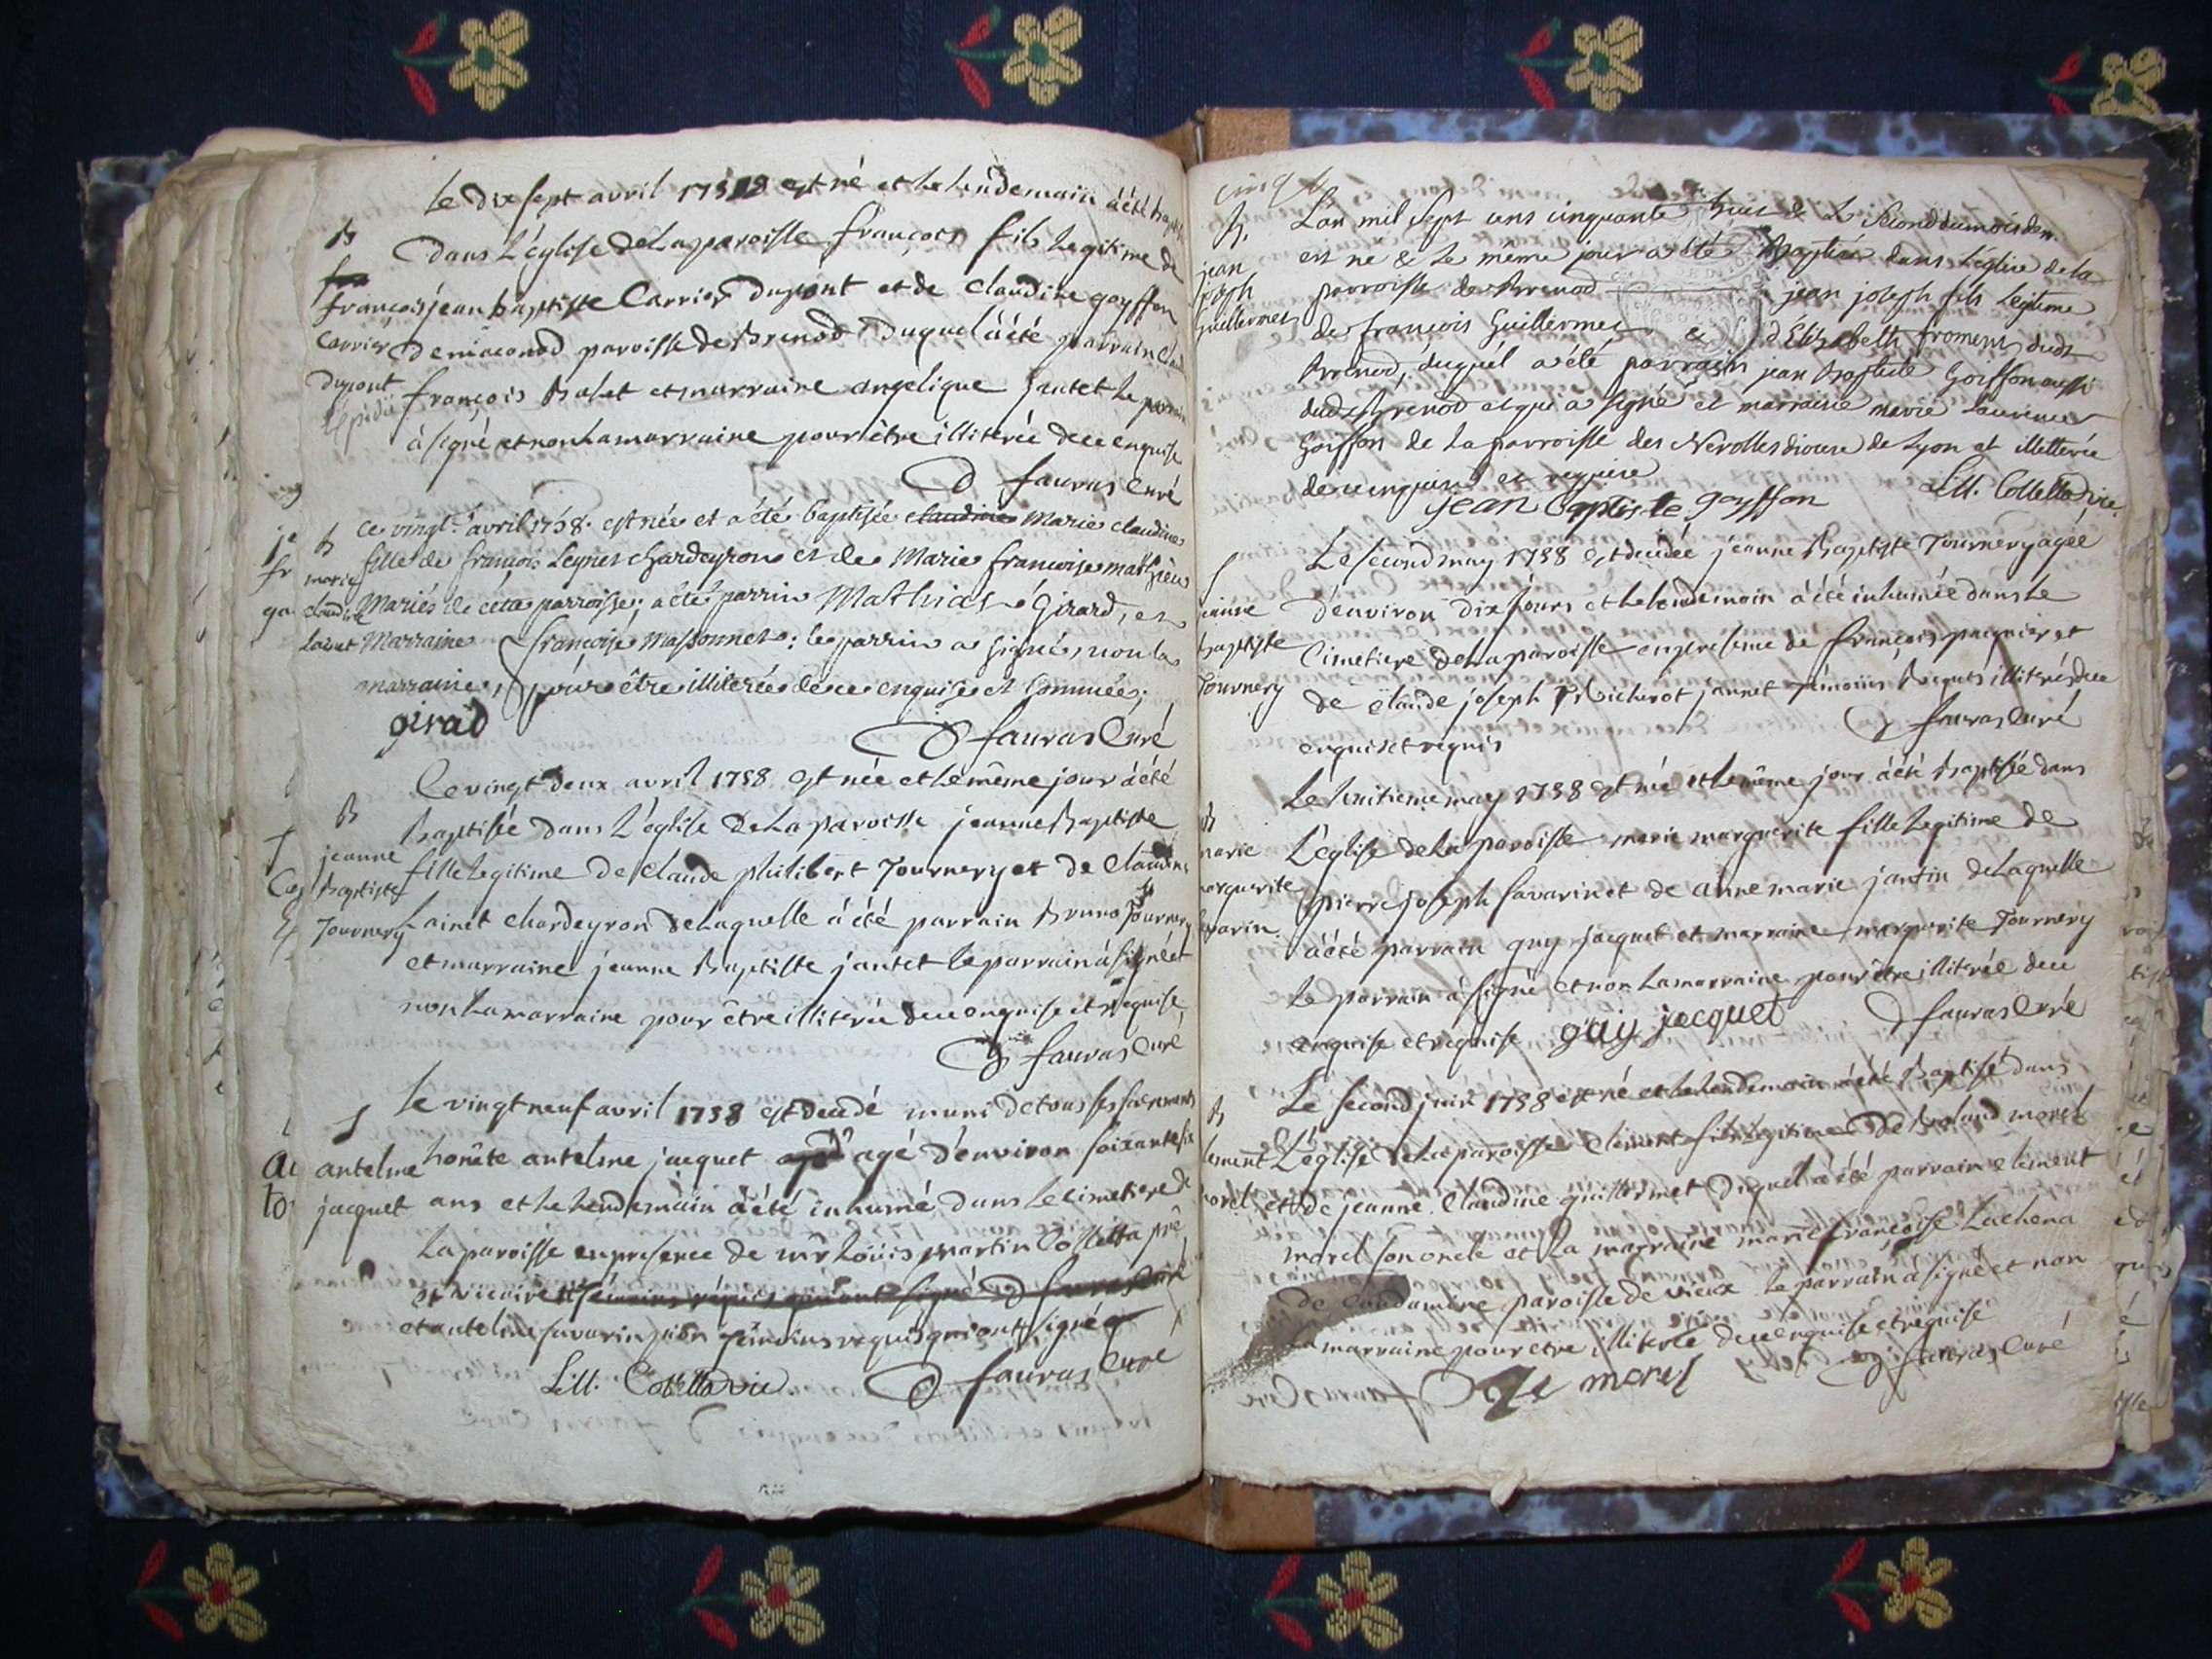 le dix sept avril 1758 est né et le lendemain à été
B
Dans L'église De La paroisse françois fils Legitime de
françois jean baptiste Carrier Dupont et de Claudine goyffon
Carrier De maconod paroisse de Brenod Duquel à été parrain
Dupont françois Balet et marraine angélique jantet le parrain
à signé et non La marraine pour être illiterée de ce enquise
fauras Curé
B
ce vingt avril 1758 est née et a été baptisée claudine Marie claudine
marie fille de françois Leynet chardeyron et de Marie françoise mathieu
claudine Mariés de cette parroisse; a été parrin Mathias Girard, et
Lainet Marraine françoise Massonnet: le parrin a signé, non la
marraine, pour être illiterée de ce enquise et sommée;
girad
fauras Curé
Ce vingt deux avril 1758 est née et le même jour à été
B
Baptisée dans L'église De La paroisse jeanne Baptiste
jeanne fille Legitime De Claude philibert Tournery et de Claudine
Baptiste
Tournery Lainet chardeyron De Laquelle à été parrain Bruno Tournery
et marraine jeanne Baptiste jantet le parrain à signé et
non La marraine pour être illiterée de ce enquise et requise
fauras Curé
le vingt neuf avril 1758 est decedé muni de tous ses sacrements
S
antelme honête antelme jacquet agé d'environ soixante six
jacquet ans et le lendemain à été inhumé dans le cimetiere de
La paroisse en presence de mr Loüis martin Colletta prê
et vicaire et témoins requis qui ont signé fauras Curé
et antelme savarin témoins requis qui ont signé
Lill. Colletta vic
fauras Curé
cinq
B.
L'an mil sept cens cinquante huit & le second du mois de
jean est né & le même jour a été Baptisé dans l'église de la
joseph parroisse de Brenod jean joseph fils legitime
Guillermet de françois Guillermet & d'Elizabeth froment dudt
Brenod, duquel a été parrain jean Baptiste Goiffon aussi
dudt Brenod et qui a signé et marraine marie Laurence
Goiffon de la parroisse des Nerolles diocese de Lyon et illitterée
de ce enquise et requise
jean baptiste goyffon
Lill. Colletta vic.
Le second may 1758 est decedée jeanne Baptiste Tournery agée
S
jeanne d'environ Dix jours et le lendemain à été inhumée dans le
baptiste Cimetiere De La paroisse en presence de françois paquier et
Tournery de claude joseph Richerot jannet témoins Requis illiterés de ce
enquis et requis
fauras Curé
Le huitieme may 1758 est née et le même jour à été Baptisée dans
B
marie L'église de La paroisse marie marguerite fille Legitime de
marguerite pierre joseph savarin et de anne marie jantin de Laquelle
savarin à été parrain guy jacquet et marraine marguerite Tournery
Le parrain à signé et non La marraine pour être illiterée de ce
enquise et requise guiy jacquet
fauras Curé
Le second juin 1758 est né et le lendemain à été Baptisé dans
B
Clement L'église De La paroisse Clement fils Legitime De Roland morel
morel et de jeanne Claudine guillermet Duquel à été parrain clement
morel son oncle et La marraine marie françoise Lachena
de Condamine paroisse de vieux Le parrain à signé et non
La marraine pour etre illiterée de ce enquise et requise
morel
fauras Curé